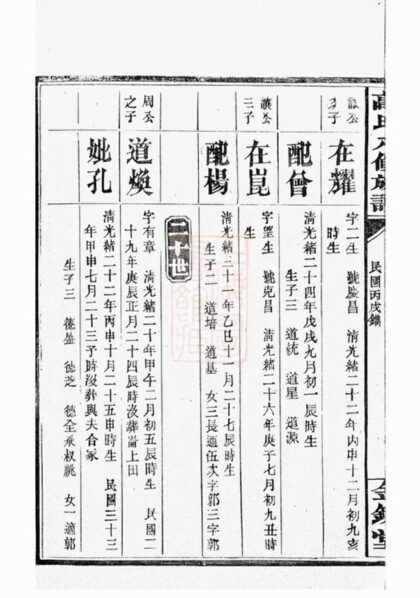 民國丙戌鐫
在耀
字二生 號慶昌 清光緒二十二年丙申十二月初九亥
時生
配曾
清光緒二十四年戊戌九月初一辰時生
生子三 道統 道星 道源
三子
在崑
字墨生 號克昌 清光緒二十六年庚子七月初九丑時
生
配楊
清光緒三十一年乙巳十一月二十七辰時生
生子二 道培 道基 女三長適伍次字郭三字郭
二十世
周公
之子
道煥
字有章 清光緒二十年甲午二月初五辰時生 民國二
十九年庚辰正月二十四辰時沒葬論上田
妣孔
清光緒二十二年丙申十月二十五申時生 民國三十三
年甲申七月二十三子時沒葬與夫合冢
生子三 德盛 德芝 德全承叔祧 女一適郭